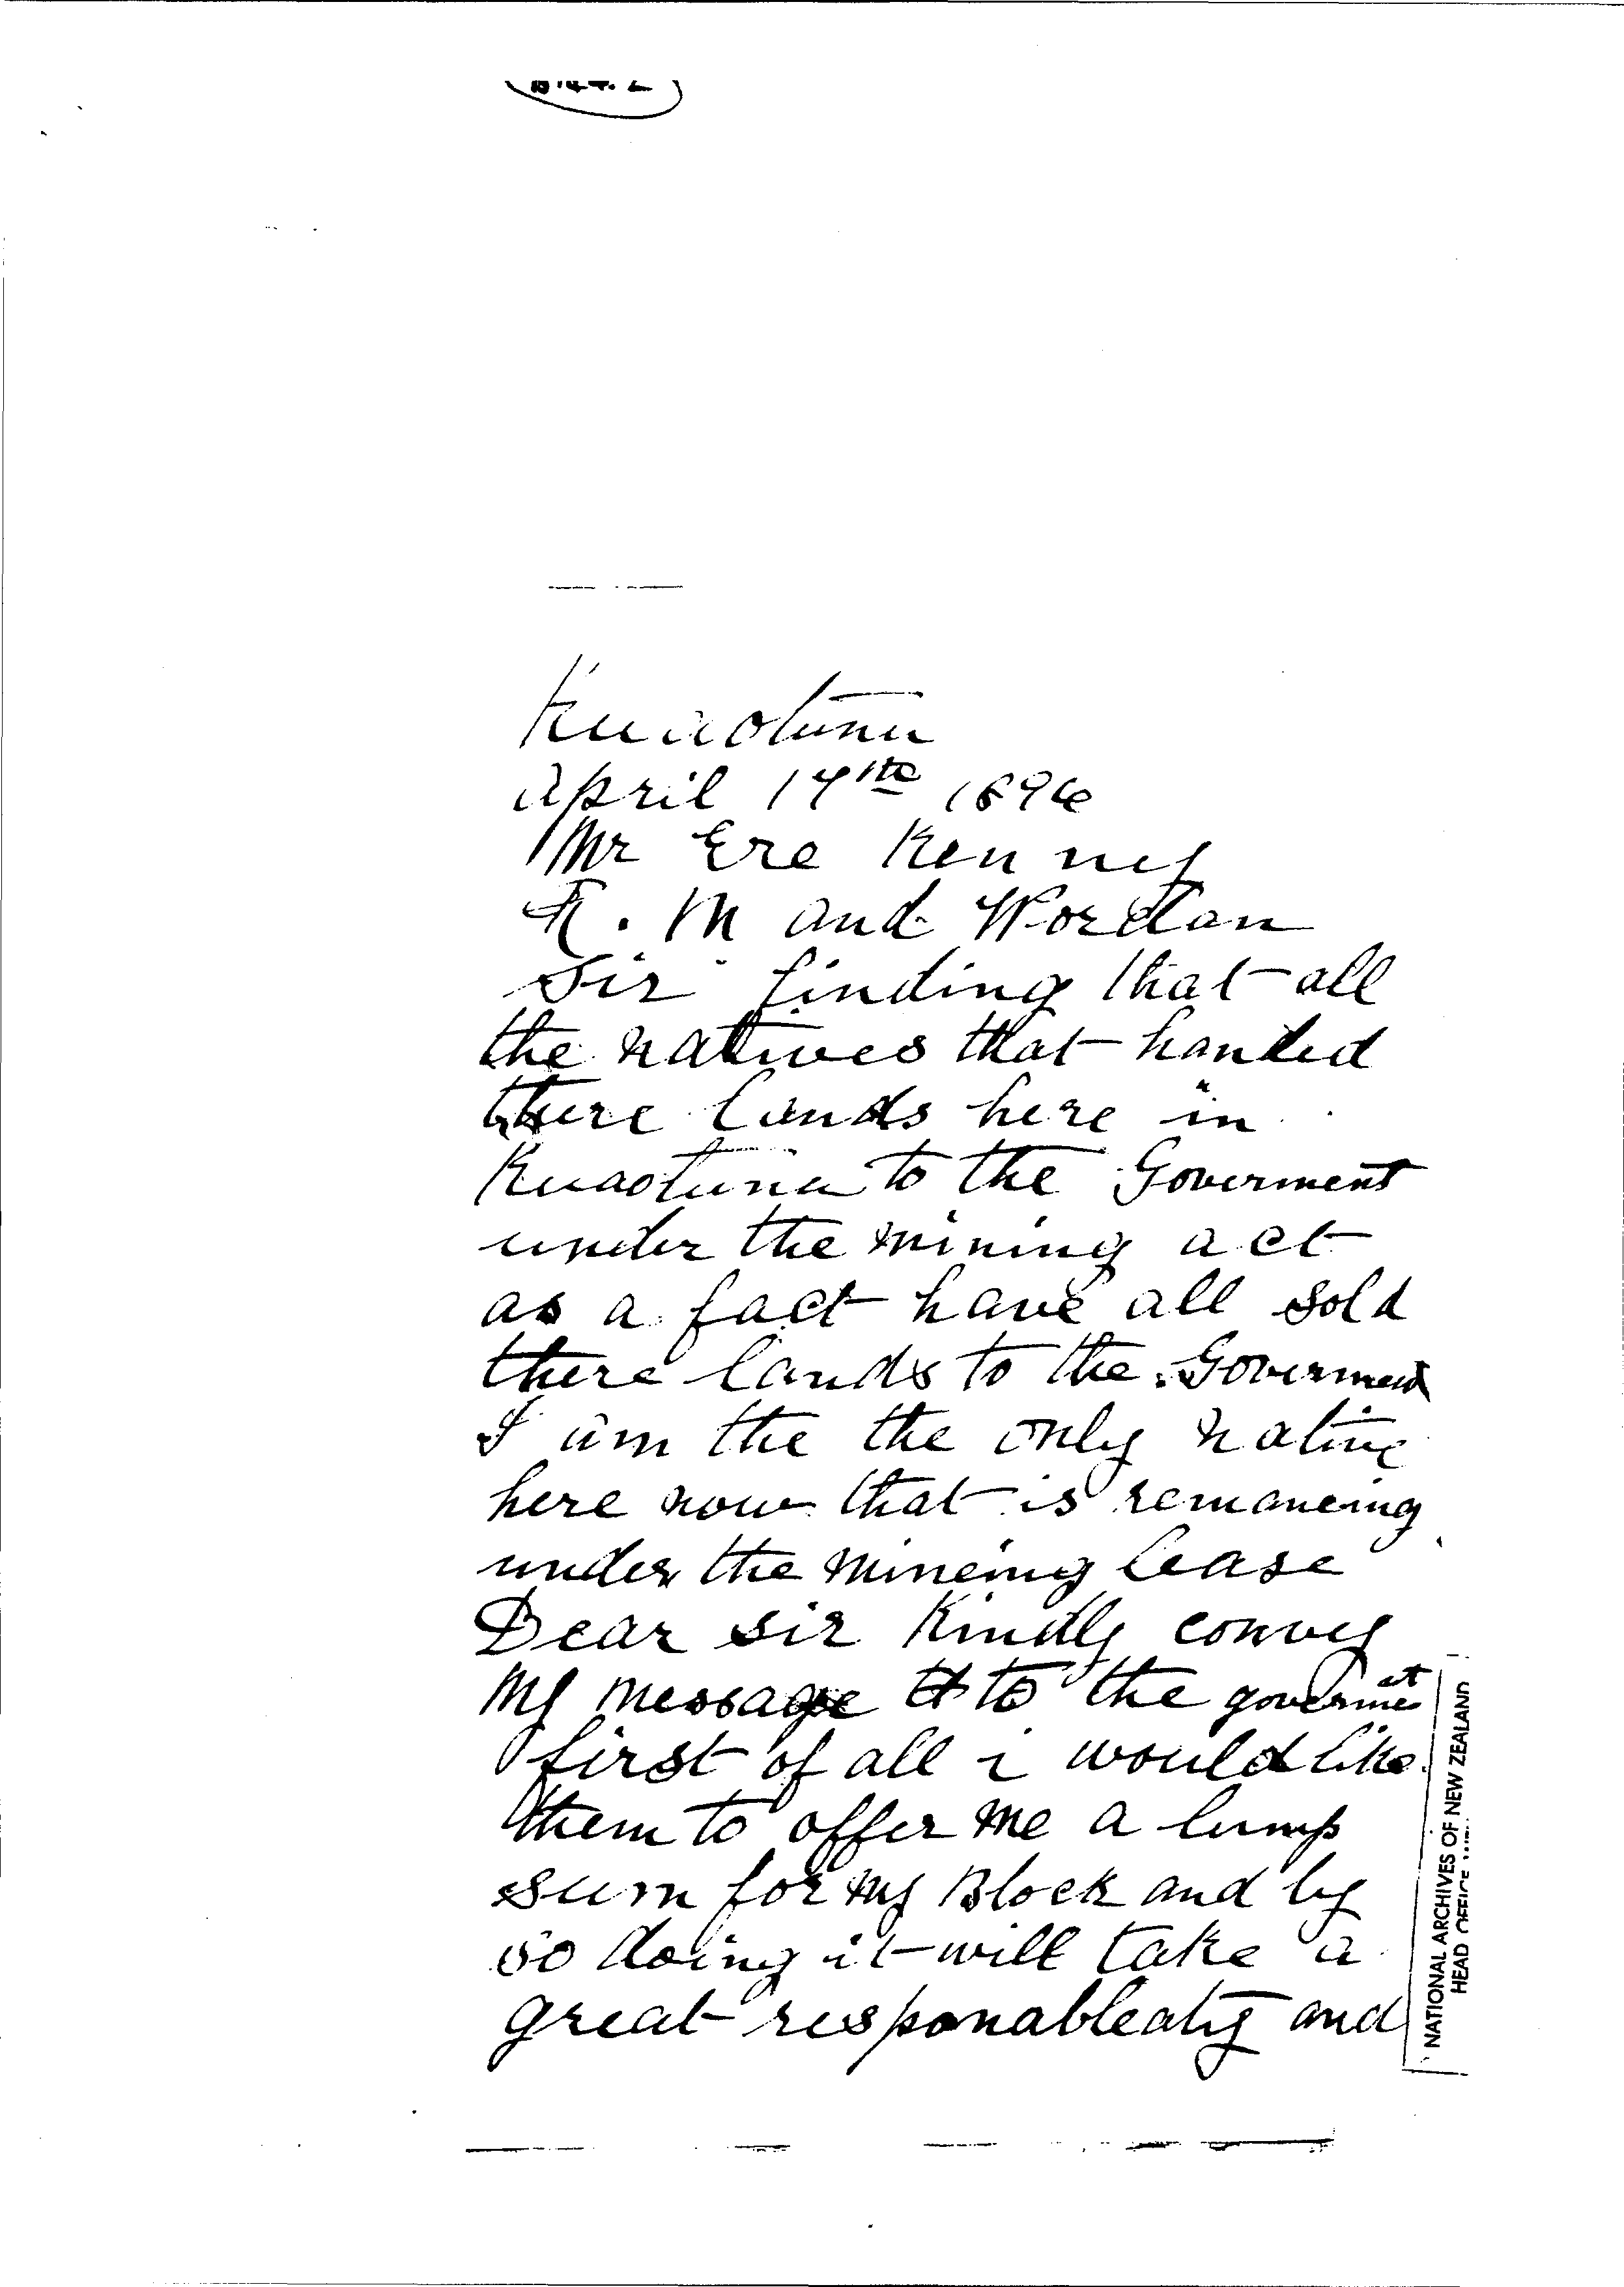 Kuaotunu
april 14th 1896
Mr Ere Kenney
R. M and Wordan
Sir finding that all
the natives that handed
there lands here in
Kuaotunu to the Goverment
under the mining act
as a fact have all sold
there lands to the Goverment
I am the the only native
here now that is remaneing
under the mineing lease
Dear sir Kindly convey
My message to the govermet
first of all i would like
them to offer me a lump
sum for my Block and by
so doing it will take a
great responableaty and
NATIONAL ARCHIVES OF NEW ZEALAND
HEAD OFFICE